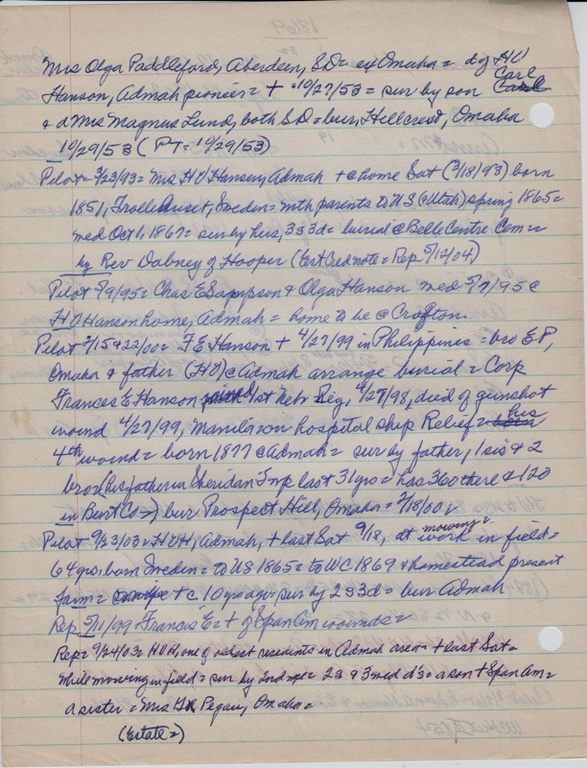 1869
Mrs Olga Paddleford, Aberdeen, SD = ex Omaha = d of HV
Hanson, Admah pioneer = + 10/27/53 = sur by son Carl
& d Mrs Magnus Lund, both SD = bur, Hillcrest, Omaha
10/29/53 (PT = 10/29/53)
Pilot = 3/23/93 = Mrs HV Hansen, Admah + @ home Sat (3/18/93) born
1851, Sweden = with parents to US (@ Utah) spring 1865 =
med Oct 1, 1867 = sur by hus, 3s 3d = burial @ Belle Centre Cem =
by Rev Dabney of Hooper (Est Cred note = Rep 5/12/04)
Pilot 5/9/95 = Chas E & Olga Hanson med 5/7/95 @
HV Hanson home, Admah = home to be @ Crofton.
Pilot 2/15 & 22/00 = F E Hanson + 4/27/99 in Philippines = bro EP,
Omaha & father (HV) @ Admah arrange burial = Corp
Frances E Hanson 1st Neb Reg, 4/27/98, died of gunshot
wound 4/27/99, Manila = on hospital ship Relief = his
4th wound = born 1877 @ Admah = sur by father, 1 sis & 2
bros (his) father in Sheridan Twp last 31 yrs = has 360 there & 120
in Burt Co =) bur Prospect Hill, Omaha = 2/18/00
Pilot 9/23/03 = HVH, Admah, + last Sat 9/18, at mowing = work in field =
64 yrs, born Sweden = to US 1865 = to WC 1869 & homestead present
farm = + @ 10 yrs ago = sur by 2s 3d = bur Admah
Rep 5/11/99 Francis E = + of Span Am wounds =
Rep = 9/24/03 = HVH, one of oldest residents in Admah area = + last Sat =
while mowing in field = sur by 2nd = 2s & 3 med d's = a son + Span Am =
a sister = Mrs Pegau, Omaha =
(Estate =)